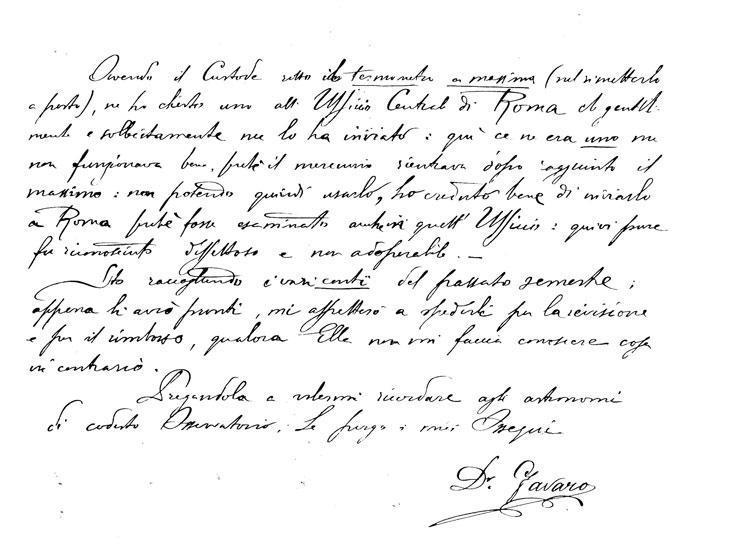 Avendo il Custode rotto il termometro a massima (nel rimetterlo
a posto), ne ho chiesto uno all' Ufficio Central di Roma che gentil-
mente e sollecitamente me lo ha inviato: qui ce ne era uno ma
non funzionava bene, perchè il mercurio rientrava dopo raggiunto il
massimo: non potendo quindi usarlo, ho creduto bene di inviarlo
a Roma perchè fosse esaminato anche in quell' Ufficio: quivi pure
fu riconosciuto difettoso e non adoperabile. —
Sto raccogliendo i vari conti del passato semestre;
appena li avrò pronti, mi affretterò a spedirli per la revisione
e per il rimborso, qualora Ella non mi faccia conoscere cosa
in contrario.
Pregandola a volermi ricordare agli astronomi
di codesto Osservatorio, Le porgo i miei Ossequi
Dr. Zavaro